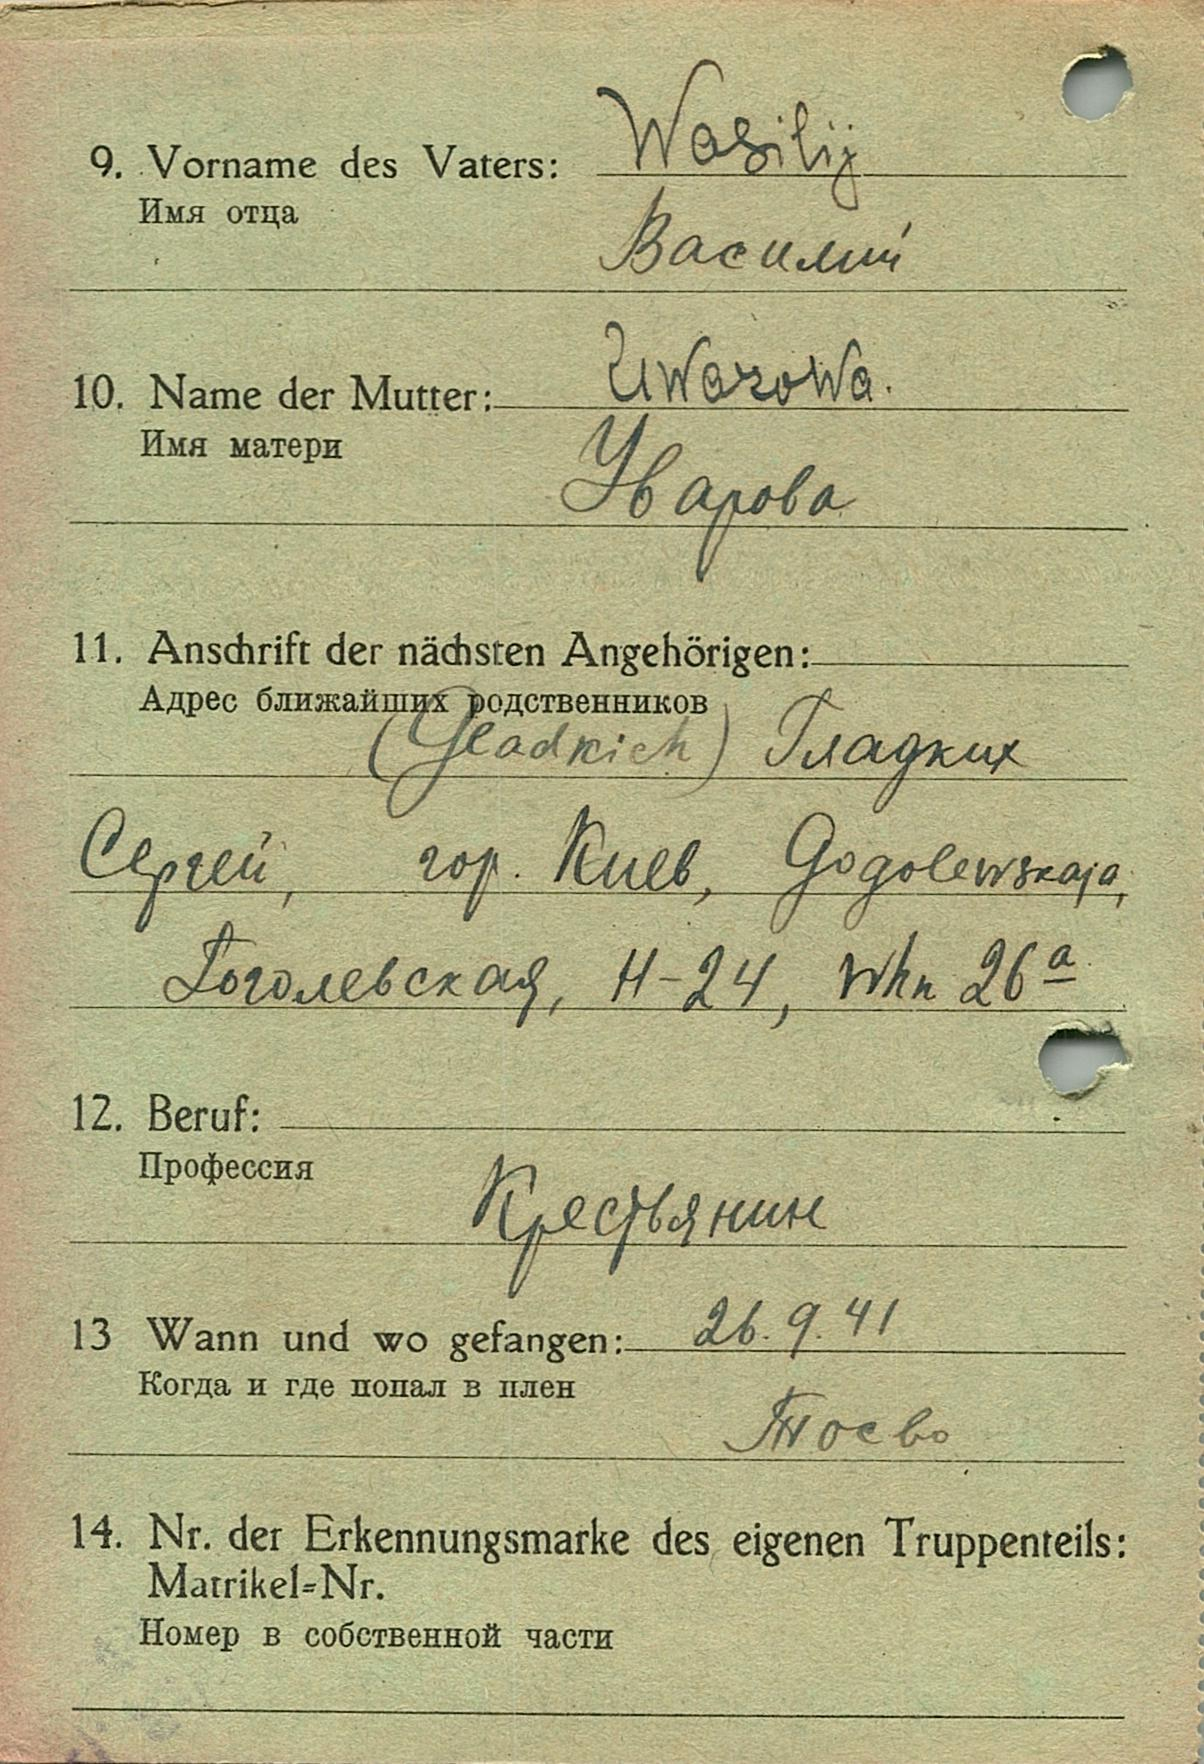 9. Vorname des Vaters: Wasilij
Имя отца
Василий
10. Name der Mutter: Uwarowa.
Имя матери
Уварова
11. Anschrift der nächsten Angehörigen:
Адрес ближайших родственников
(Gladkich) Гладких
Сергей, гор. Киев, Gogolewskaja,
Гоголевская, Н-24, Whn 26a
12. Beruf:
Профессия
Крестьянин
13 Wann und wo gefangen: 26. 9. 41
Когда и где попал в плен
14. Nr. der Erkennungsmarke des eigenen Truppenteils:
Matrikel=Nr.
Номер в собственной части